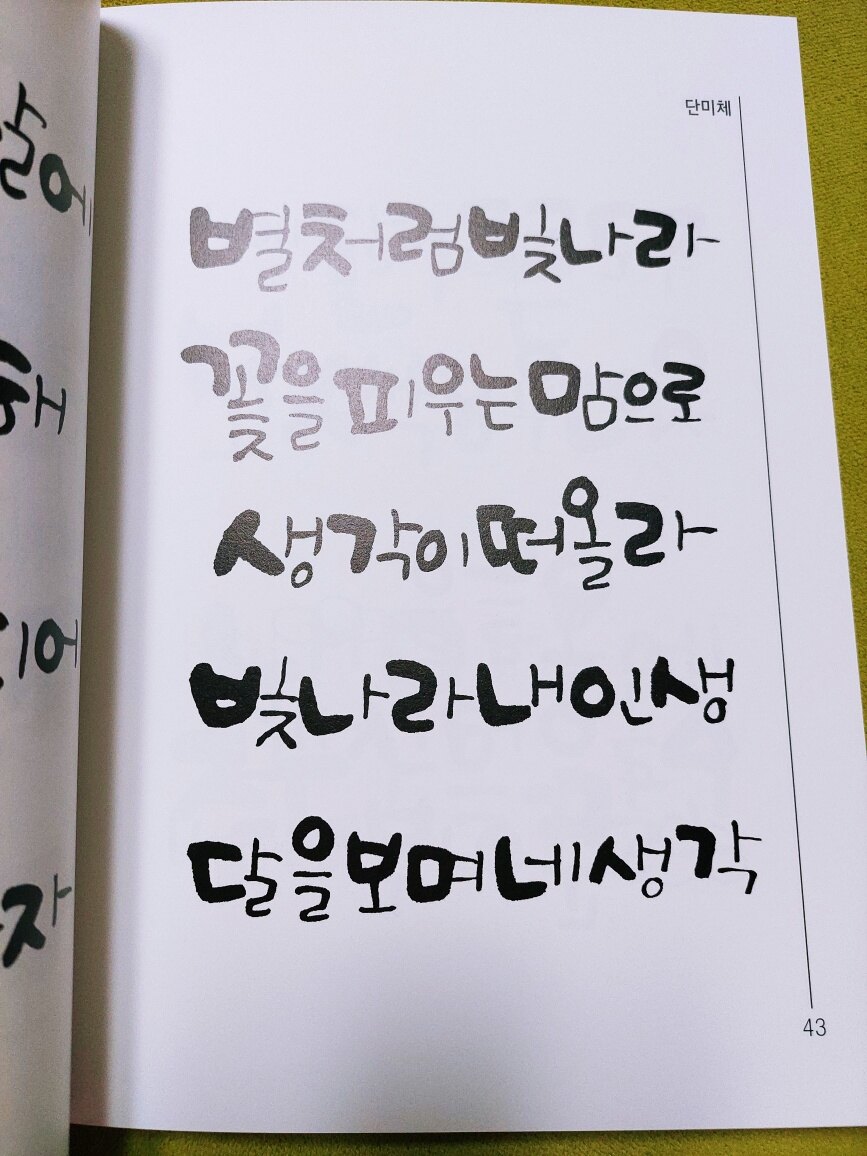 단미체
별처럼빛나라
꽃을피우는맘으로
생각이떠올라
빛나라내인생
달을보며네생각
43